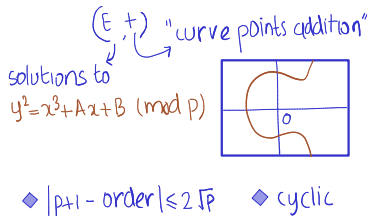 (E, +) "curve points addition"
solutions to
y²=x³+Ax+B (mod p)
O
|p+1 - order| ≤ 2√p
cyclic